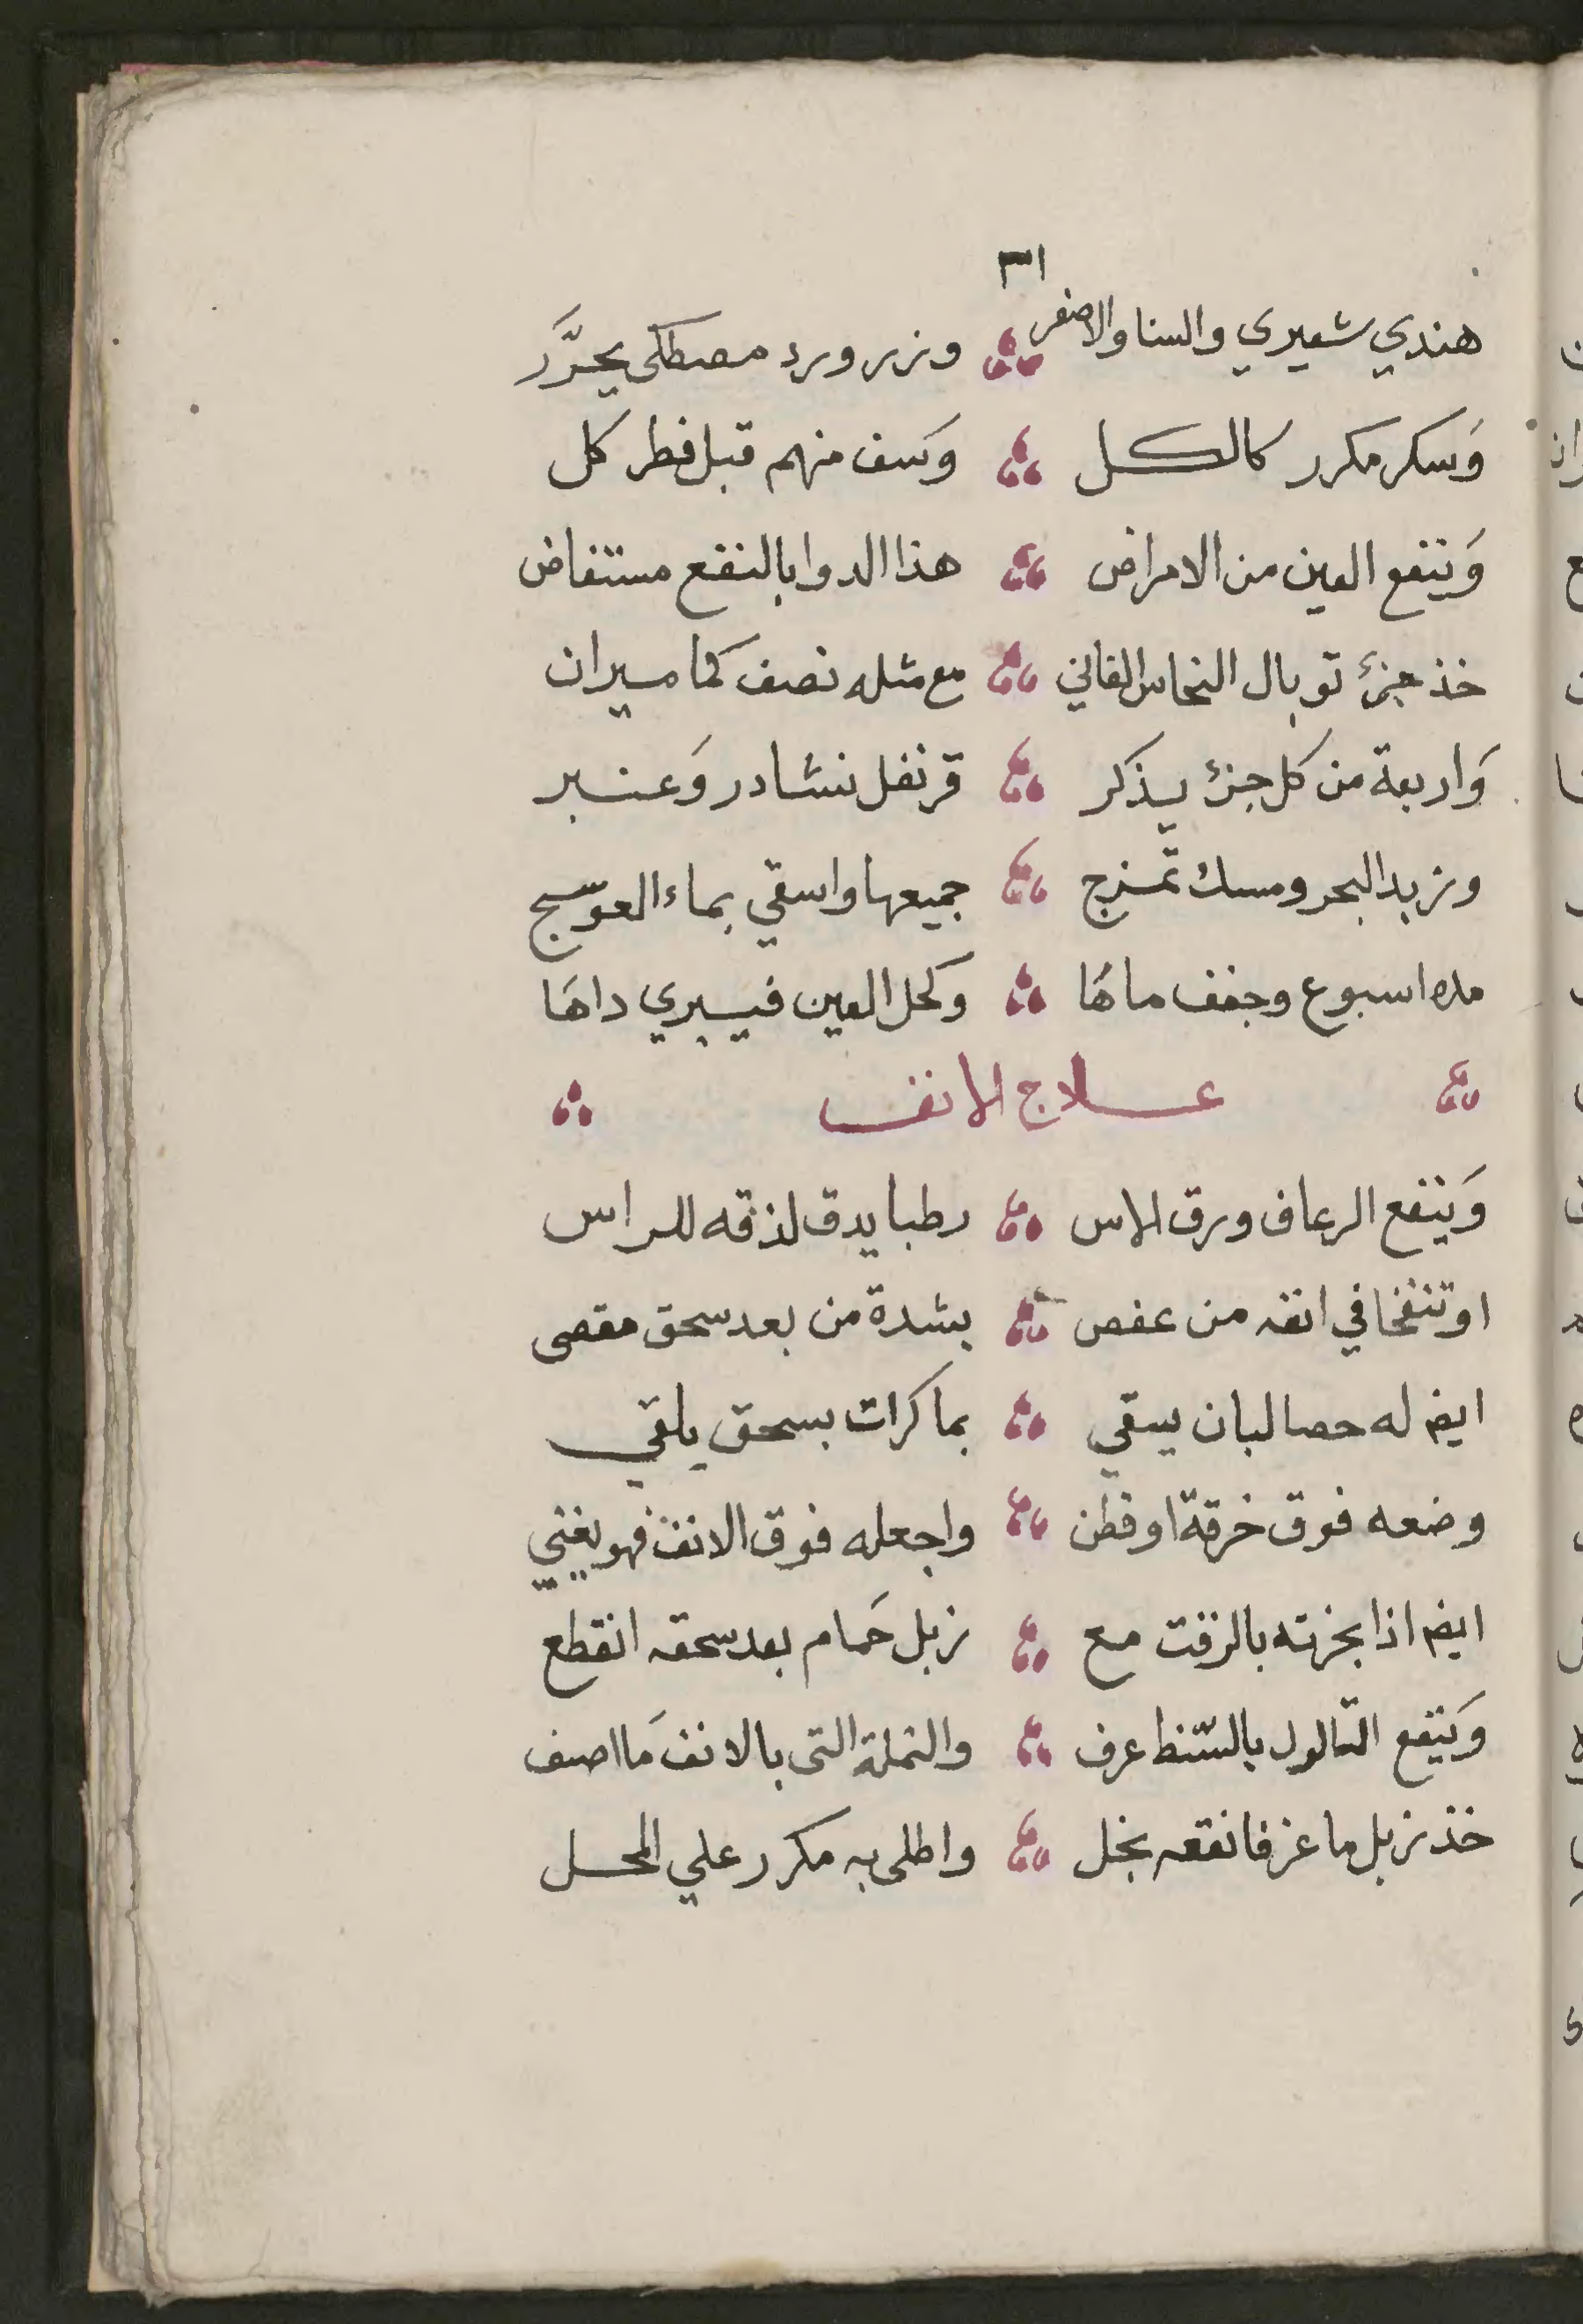 ٣١
هندي شعيري والسنا والاصفر وزر ورد مصطكى يحرَّر
وَسكر مكرر كالكل وَسف منهم قبل فطر كل
وَينفع العين من الامراض هذا الدوا بالنفع مستفاض
خذ جزئ توبال النحاس القاني مع مثله نصف كما ميران
وَاربعة من كل جزئ يذكر قرنفل نشادر وَعنبر
وزبد البحر ومسك تمزج جميعها واسقي بماء العوسج
مده اسبوع وجفف ماهَا وكحل العين فيبري داهَا
علاج الانف
وَينفع الرعاف ورق الاس رطبا يدق لذقه للراس
او تنفخا في انفه من عفص بشدة من بعد سحق مقصى
ايضم له حصا لبان يسقي بما كرات بسحق يلقي
وضعه فوق خرقة او قطن واجعله فوق الانف فهو يغني
ايضم اذا بخرته بالزفت مع زبل حَمام بعد سحقه انقطع
وَينفع التالول بالشنط عرف والنملة التى بالانف مَا اصف
خذ زبل ماعز فانقعه بخل واطلى به مكرر علي المحل